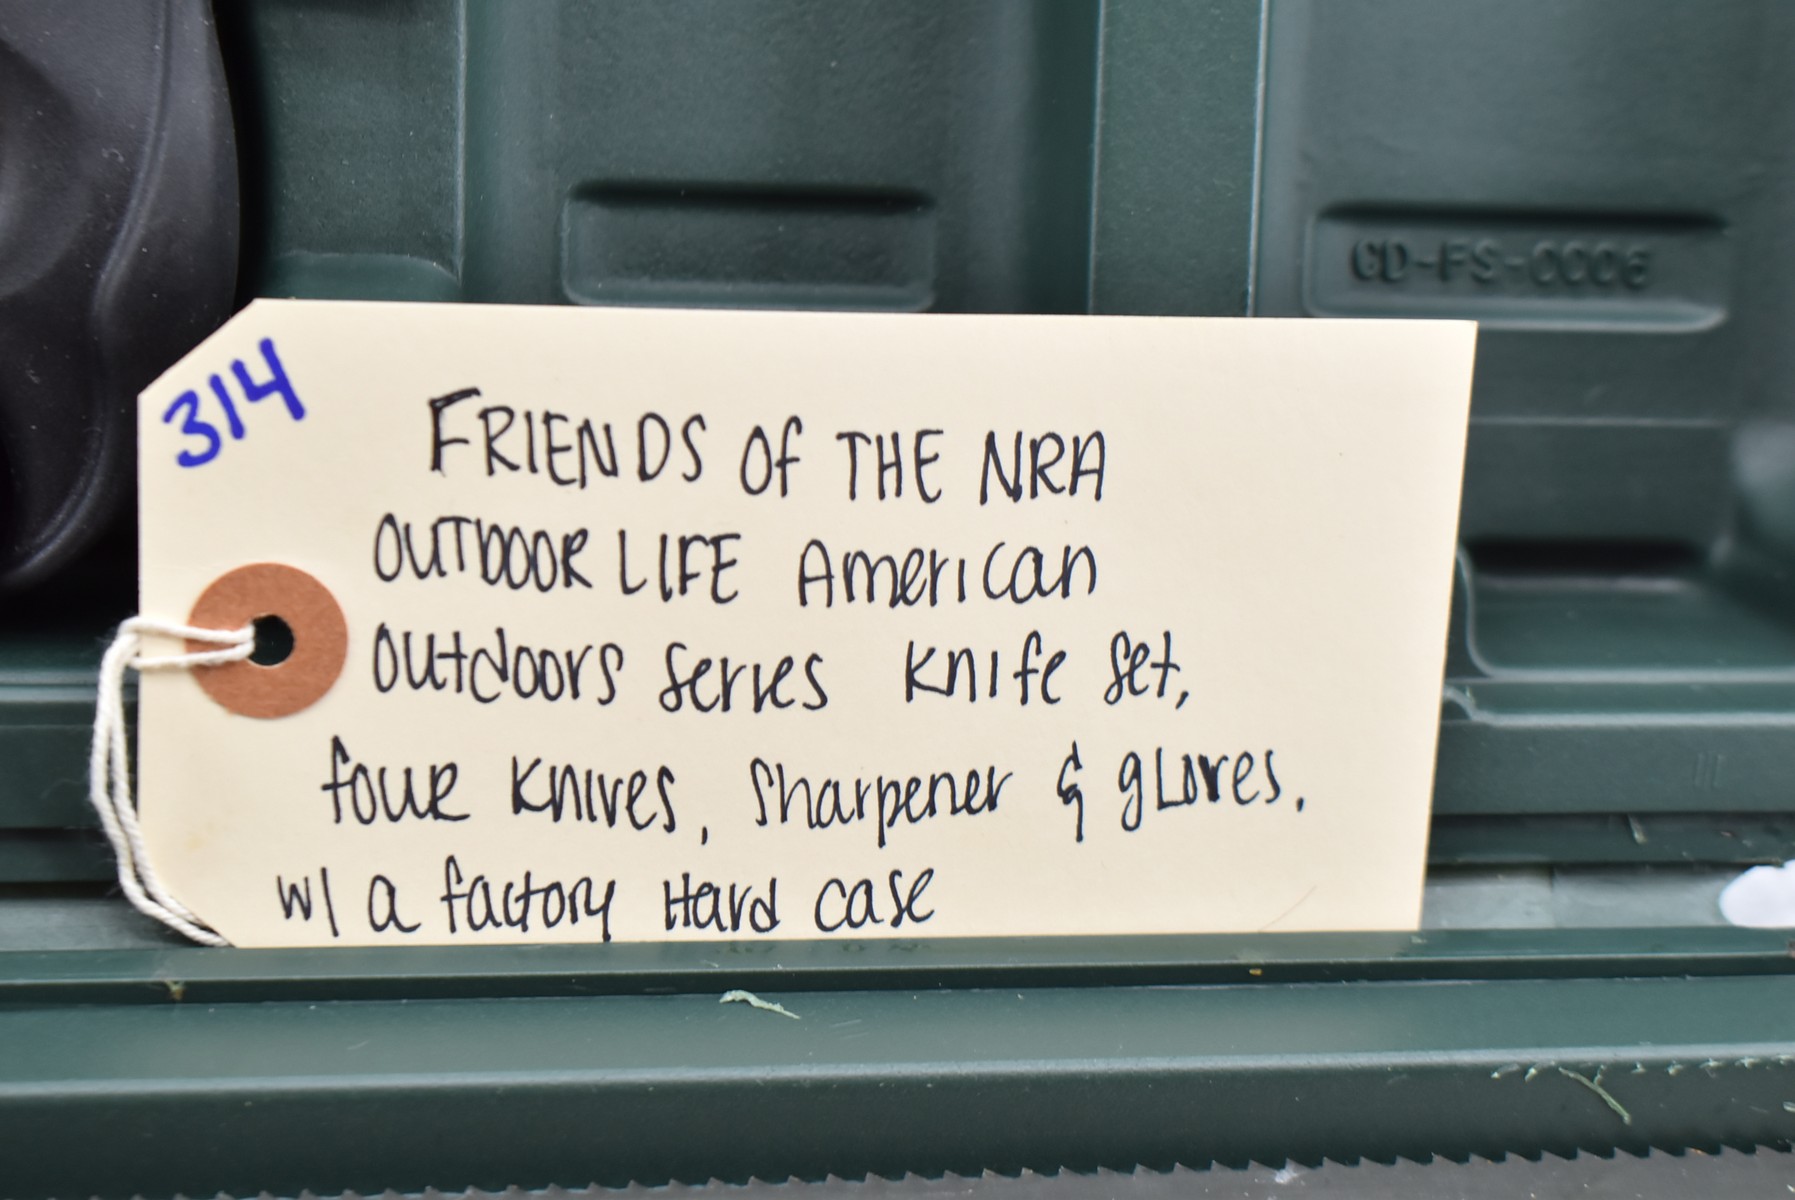 CD-FS-0006
314
FRIENDS OF THE NRA
OUTDOOR LIFE American
Outdoors Series Knife Set,
four Knives, Sharpener & gloves.
w/ a factory Hard case